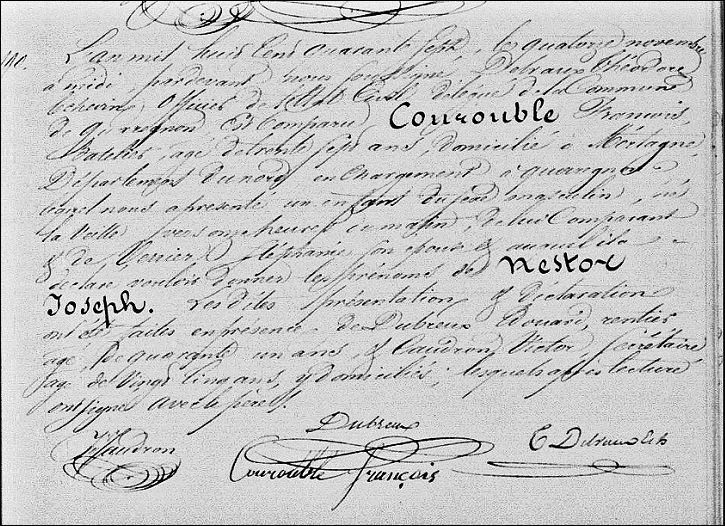 110.
L'an mil huit Cent quarante Sept, le quatorze novembre
a midi, pardevant nous soussigné, Delvaux théodore
Echevin, Officier de l'Etat Civil délégué de la Commune
de Quaregnon Est Comparu Courouble François,
Batelier, age de trente sept ans, Domicilié a Mortagne,
Département Du nord, en Chargement à quaregnon
Lequel nous a présenté un enfant du sexe masculin, né
la veille vers onze heures du matin, de lui Comparant
& de Verrier Stéphanie son épouse & auquel il a
déclaré vouloir donner les prénoms de Nestor
Joseph. Les dites présentation & Déclaration
ont été faites en présence de Dubreux Edouard, rentier
age de quarante un ans, & Caudron, Victor, Secrétaire
age de Vingt Cinq ans, y domiciliés, lesquels après lecture
ont signé avec le père.
Dubreux
VCaudron E Delvaux Ech
Courouble François